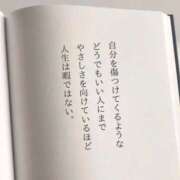 自分を傷つけてくるような
どうでもいい人にまで
やさしさを向けているほど
人生は暇ではない。